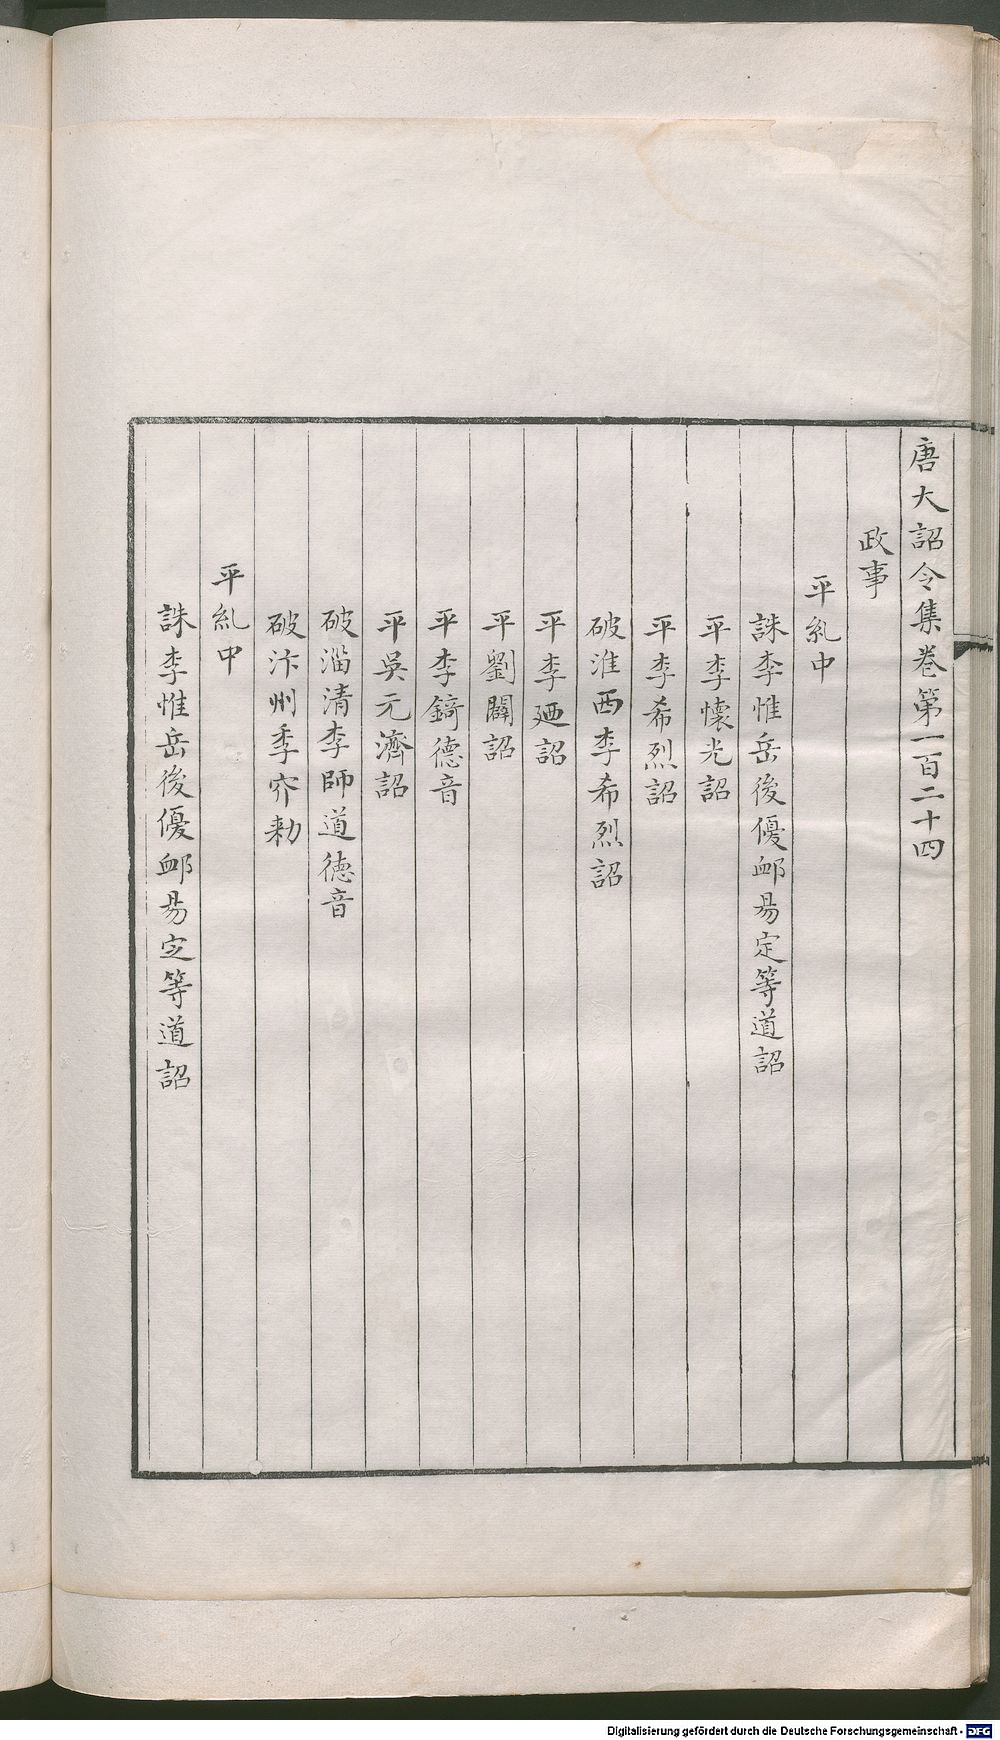 唐大詔令集卷第一百二十四
政事
平乱中
誅李惟岳後優䘏易定等道詔
平李懷光詔
平李希烈詔
破淮西李希烈詔
平李廼詔
平劉闢詔
平李錡德音
平吳元濟詔
破淄清李師道德音
破汴州李㝏勑
平乱中
誅李惟岳後優䘏易定等道詔
Digitalisierung gefördert durch die Deutsche Forschungsgemeinschaft - DFG